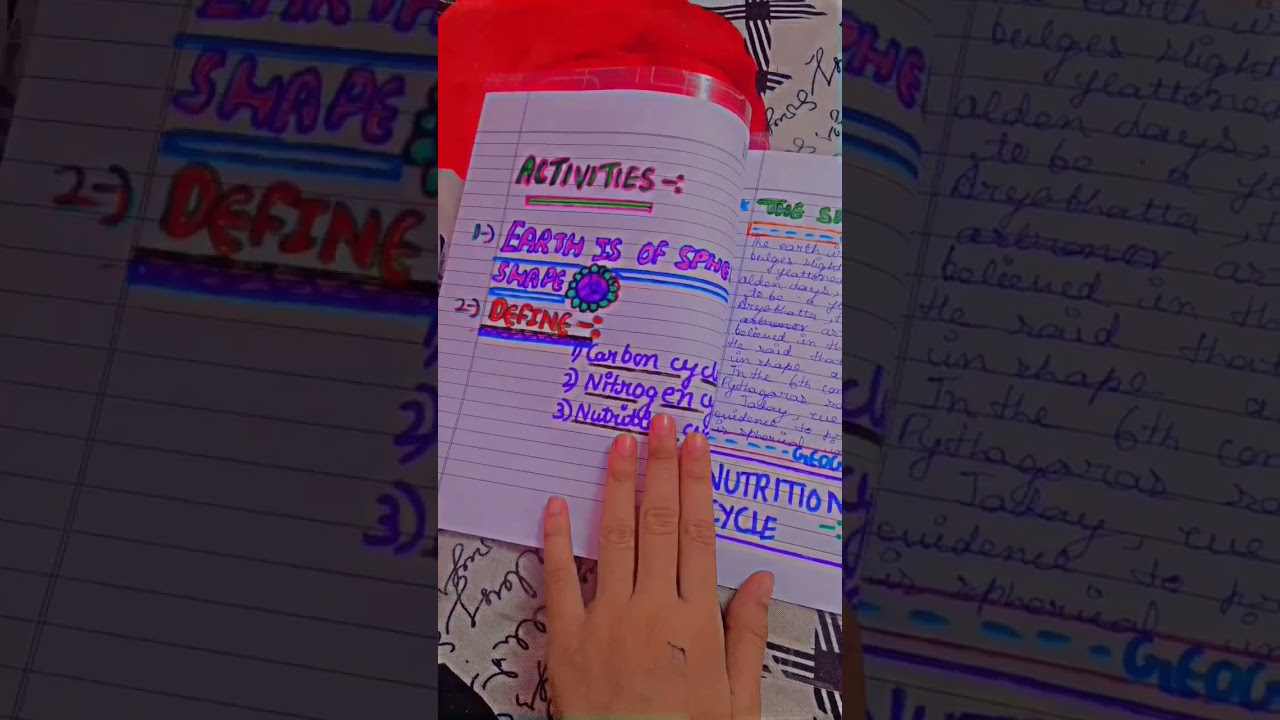 ACTIVITIES -:
1-) EARTH IS OF SPHE
SHAPE
2-) DEFINE -:
1) Carbon cycl
2) Nitrogen cy
3) Nutri
THE S
The earth i
bulges slight
flattened
alden days,
to be a f
Aryabhatta,
believed in th
He said that
in shape a
In the 6th cen
Pythagoras
Today, we
evidence to
is spherical
GEOG
NUTRITION
CYCLE -: